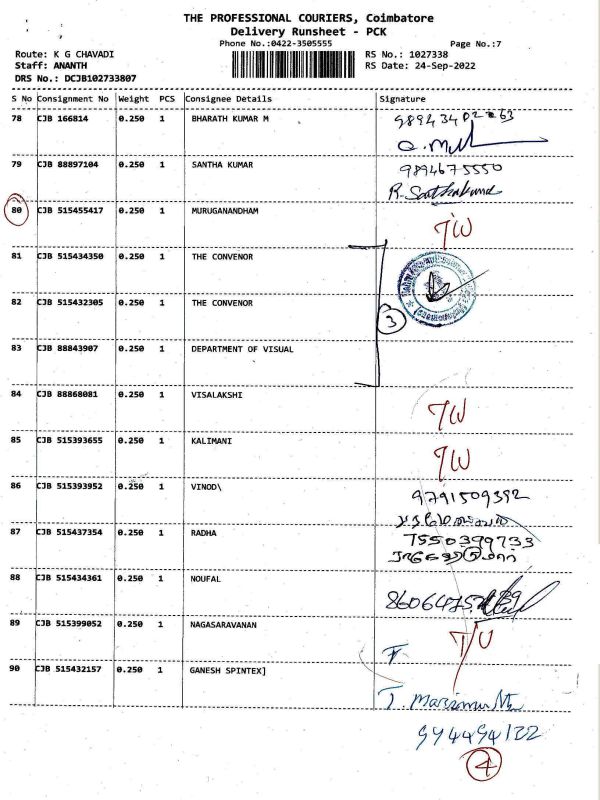 THE PROFESSIONAL COURIERS, Coimbatore
Delivery Runsheet - PCK
Phone No.:0422-3505555 Page No.:7
Route: K G CHAVADI RS No.: 1027338
Staff: ANANTH RS Date: 24-Sep-2022
DRS No.: DCJB102733807
S No Consignment No Weight PCS Consignee Details Signature
78 CJB 166814 0.250 1 BHARATH KUMAR M
79 CJB 88897104 0.250 1 SANTHA KUMAR 9894675550
80 CJB 515455417 0.250 1 MURUGANANDHAM
81 CJB 515434350 0.250 1 THE CONVENOR
82 CJB 515432305 0.250 1 THE CONVENOR
3
83 CJB 88843907 0.250 1 DEPARTMENT OF VISUAL
84 CJB 88868081 0.250 1 VISALAKSHI
85 CJB 515393655 0.250 1 KALIMANI
86 CJB 515393952 0.250 1 VINOD\ 9791509392
87 CJB 515437354 0.250 1 RADHA 7550399733
88 CJB 515434361 0.250 1 NOUFAL
89 CJB 515399052 0.250 1 NAGASARAVANAN
90 CJB 515432157 0.250 1 GANESH SPINTEX]
4